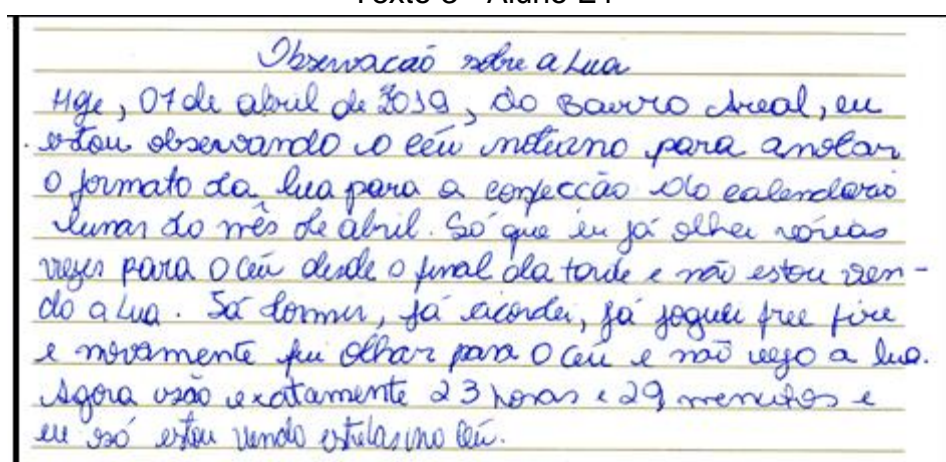 Observacaö sobre a Lua
Hoje, 07 de abril de 2019, do Bairro Areal, eu
estou observando o céu noturno para anotar
o formato da lua para a confecção do calendario
lunar do mês de abril. Só que eu já olhei várias
vezes para o céu desde o final da tarde e não estou ven-
do a Lua. Já dormi, já acordei, já joguei free fire
e novamente fui olhar para o céu e não vejo a lua.
Agora são exatamente 23 horas e 29 menutos e
eu só estou vendo estrelas no céu.